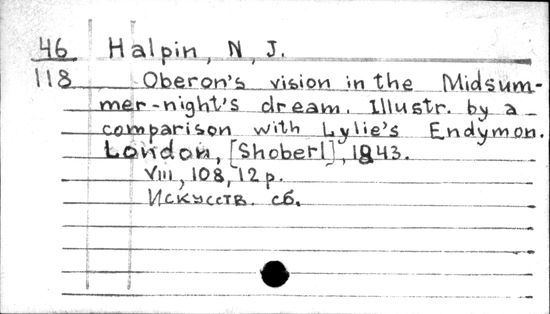 46 Halpin, N. J.
118 Oberon's vision in the Midsum-
mer-night's dream. Illustr. by a
comparison with Lylie's Endymon.
London, [Shoberl], 1843.
VIII, 108, 12 p.
Искусств. сб.